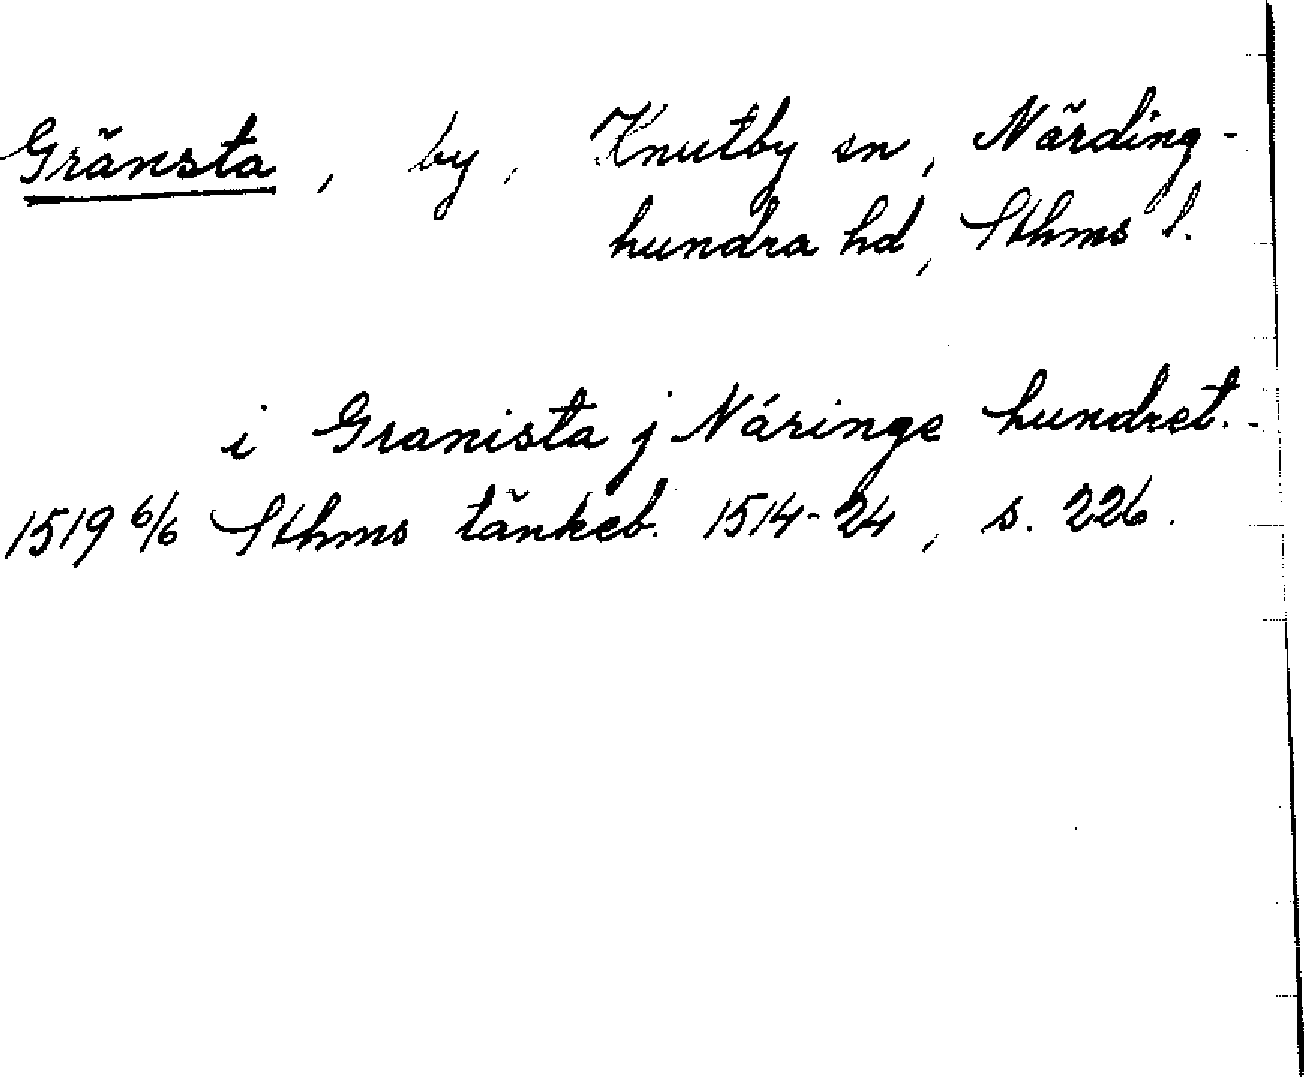 Gränsta, by, Knutby sn, Närding-
hundra hd, Sthms l.
i Granista j Náringe hundret.
1519 6/6 Sthms tänkeb. 1514-24, s. 226.